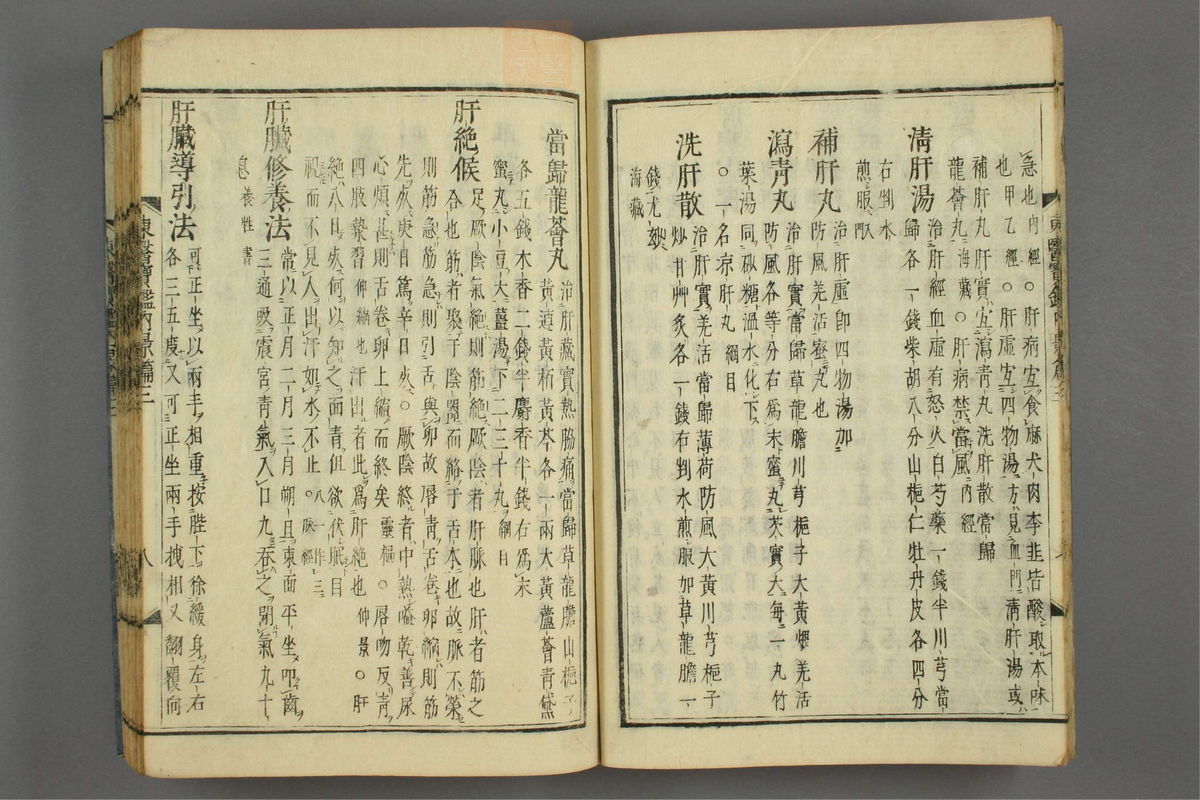 急也內經○肝病宜食麻犬肉李韭皆酸取本味
也甲乙經○肝虛宜四物湯方見血門淸肝湯或
補肝丸肝實宜瀉靑丸洗肝散當歸
龍薈丸海藏○肝病禁當風內經
淸肝湯治肝經血虛有怒火白芍藥一錢半川芎當
歸各一錢柴胡八分山梔仁牡丹皮各四分
右剉水
煎服
補肝丸治肝虛卽四物湯加
防風羌活蜜丸也
瀉靑丸治肝實當歸草龍膽川芎梔子大黃煨羌活
防風各等分右爲末蜜丸芡實大每一丸竹
葉湯同砂糖溫水化下
○一名凉肝丸綱目
洗肝散治肝實羌活當歸薄荷防風大黃川芎梔子
炒甘艸炙各一錢右剉水煎服加草龍膽一
錢尤妙
海藏
當歸龍薈丸治肝藏實熱脇痛當歸草龍膽山梔子
黃連黃栢黃芩各一兩大黃蘆薈靑黛
各五錢木香二錢半麝香半錢右爲末
蜜丸小豆大薑湯下二三十丸綱目
肝絕候足厥陰氣絕則筋絕厥陰者肝脉也肝者筋之
合也筋者聚于陰器而絡于舌本也故脈不榮
則筋急筋急則引舌與卵故唇靑舌卷卵縮則筋
先死庚日篤辛日死○厥陰終者中熱嗌乾善尿
心煩甚則舌卷卵上縮而終矣靈樞○唇吻反靑
四肢漐習伸縮也汗出者此爲肝絕也仲景○肝
絕八日死何以知之面靑但欲伏眠目
視而不見人出汗如水不止○脈經八作三
肝臟修養法常以正月二月三月朔旦東面平坐叩齒
三通吸震宮靑氣入口九吞之閉氣九十
息養牲書
肝臟導引法可正坐以兩手相重按䏶下徐緩身左右
各三五度又可正坐兩手拽相叉翻覆向
東醫寶鑑內景篇三
八